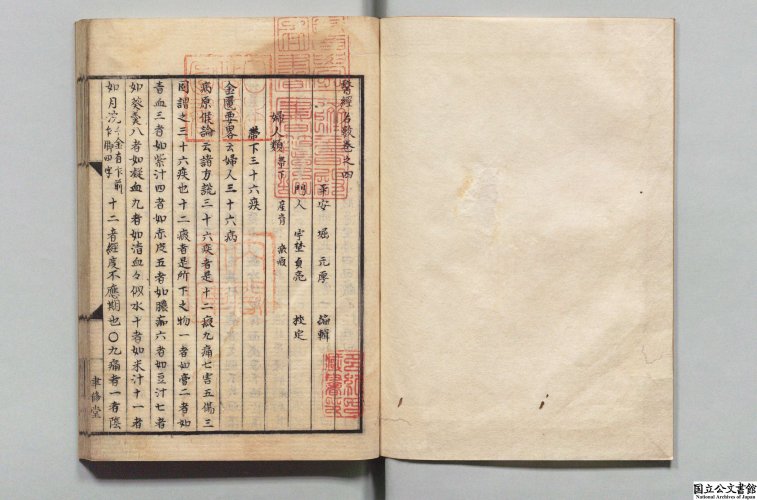 醫經名數卷之四
平安 堀 元厚 編輯
門人 宇埜貞亮 挍定
婦人類 帶下 產育 㿏瘕
帶下三十六疾
金匱要畧云婦人三十六病
病原候論云諸方說三十六疾者是十二瘕九痛七害五傷三
固謂之三十六疾也十二瘕者是所下之物一者如膏二者如
青血三者如紫汁四者如赤皮五者如膿痂六者如豆汁七者
如葵羹八者如凝血九者如清血々似水十者如米汁十一者
如月浣 十二者經度不應期也〇九痛者一者陰
聿脩堂
国立公文書館
National Archives of Japan